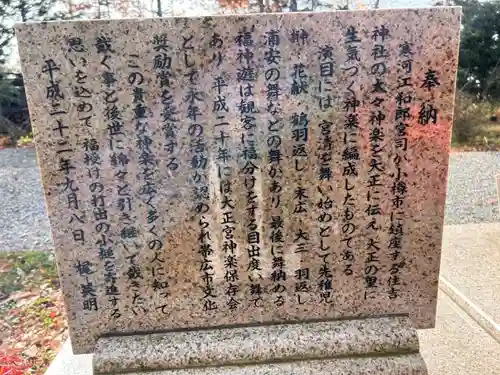 奉納
寒河江和郎宮司が小樽市に鎮座する住吉
神社の太々神楽を大正に伝え、大正の里に
生気づく神楽に編成したものである
演目には、宮清を舞い始めとして先稚児
榊、花献、鶴羽返し、末広、大三、羽返し
浦安の舞などの舞があり、最後に舞納める
福神遊は観客に福分けをする目出度い舞で
あり、平成二十年には大正宮神楽保存会
として永年の活動が認められ帯広市文化
奨励賞を受賞する
この貴重な神楽を広く多くの人に知って
戴く事と後世に綿々と引き継いで戴きたい
思いを込めて、福授けの打出の小槌を奉進する
平成二十二年九月八日 梶 英明